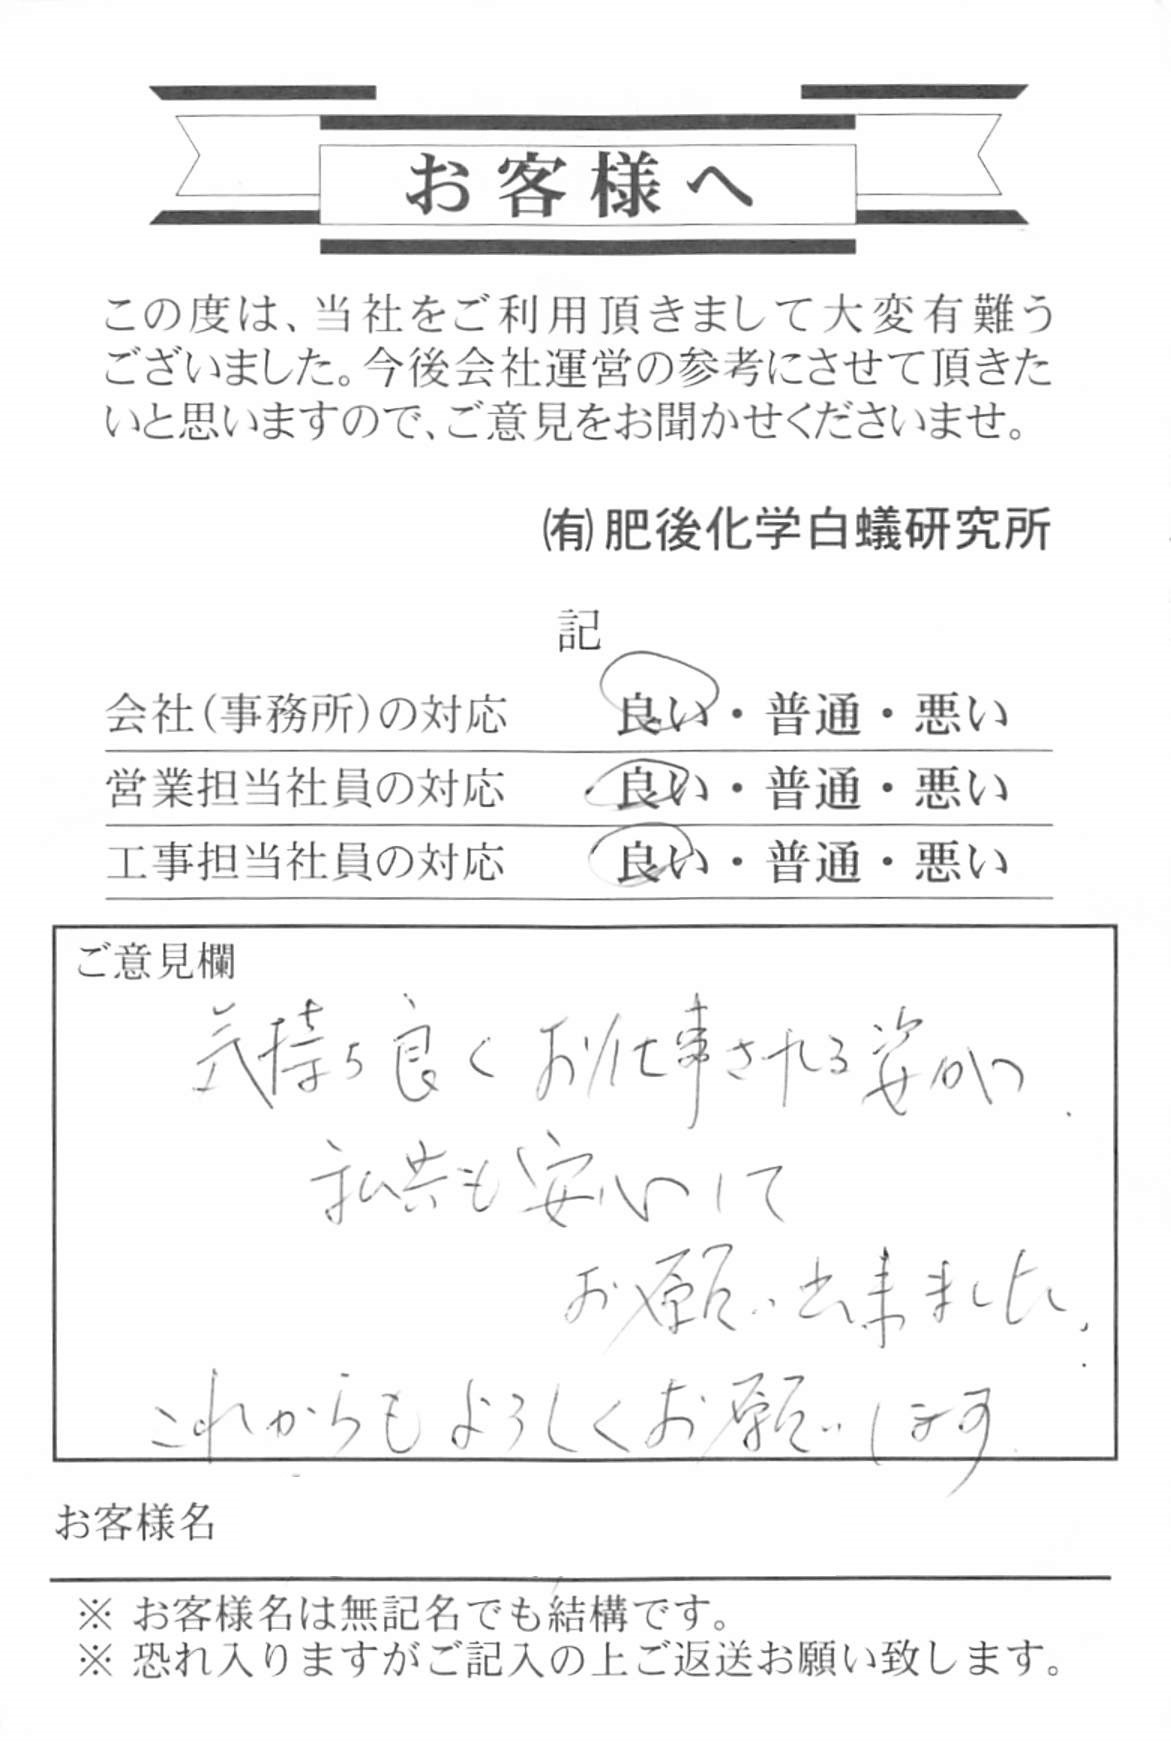 お客様へ
この度は、当社をご利用頂きまして大変有難う
ございました。今後会社運営の参考にさせて頂きた
いと思いますので、ご意見をお聞かせくださいませ。
㈲肥後化学白蟻研究所
記
会社(事務所)の対応 良い・普通・悪い
営業担当社員の対応 良い・普通・悪い
工事担当社員の対応 良い・普通・悪い
ご意見欄
気持ち良くお仕事される姿に
私共も安心して
お願い出来ました。
これからもよろしくお願いします
お客様名
※ お客様名は無記名でも結構です。
※ 恐れ入りますがご記入の上ご返送お願い致します。